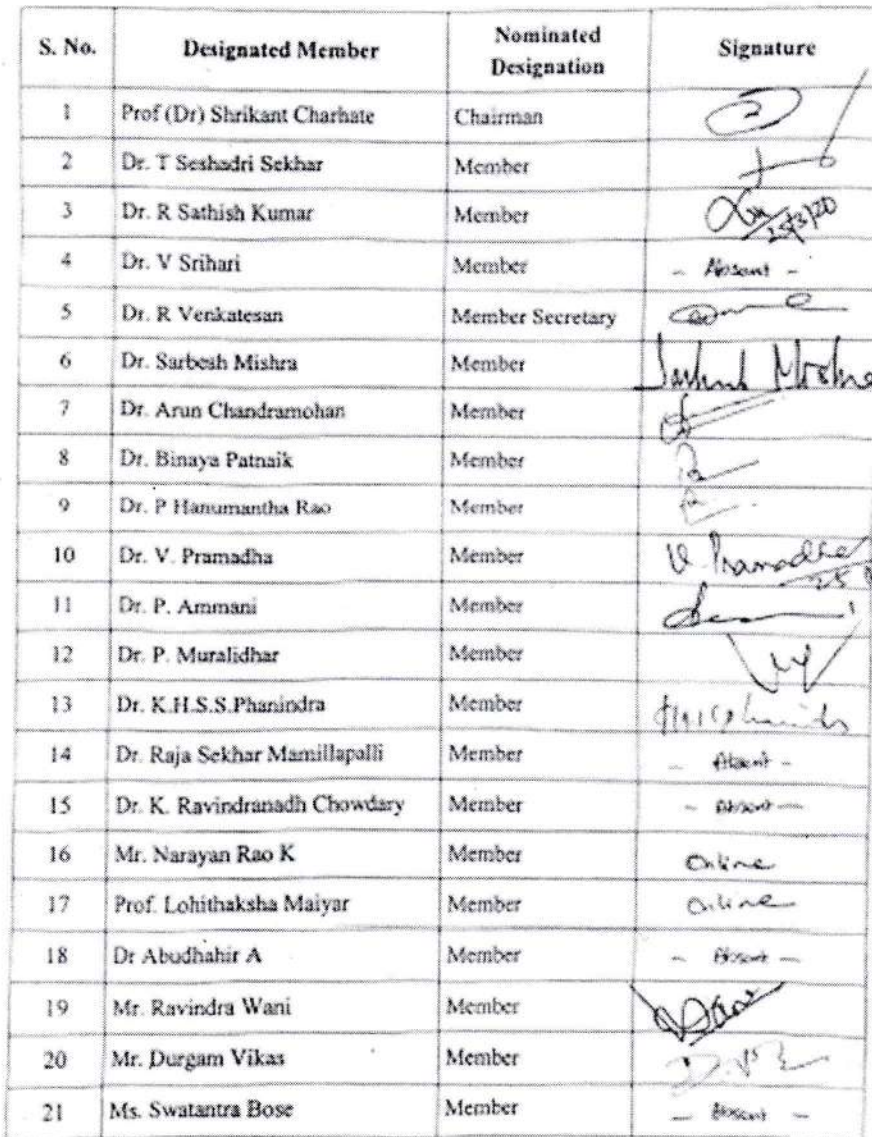 S. No. Designated Member Nominated Designation Signature
1 Prof (Dr) Shrikant Charhate Chairman
2 Dr. T Seshadri Sekhar Member
3 Dr. R Sathish Kumar Member 25/3/20
4 Dr. V Srihari Member - Absent -
5 Dr. R Venkatesan Member Secretary
6 Dr. Sarbesh Mishra Member
7 Dr. Arun Chandramohan Member
8 Dr. Binaya Patnaik Member
9 Dr. P Hanumantha Rao Member
10 Dr. V. Pramadha Member V. Pramadha
11 Dr. P. Ammani Member
12 Dr. P. Muralidhar Member
13 Dr. K.H.S.S.Phanindra Member
14 Dr. Raja Sekhar Mamillapalli Member - Absent -
15 Dr. K. Ravindranadh Chowdary Member - Absent -
16 Mr. Narayan Rao K Member Online
17 Prof. Lohithaksha Maiyar Member Online
18 Dr Abudhahir A Member - Absent -
19 Mr. Ravindra Wani Member
20 Mr. Durgam Vikas Member
21 Ms. Swatantra Bose Member - Absent -